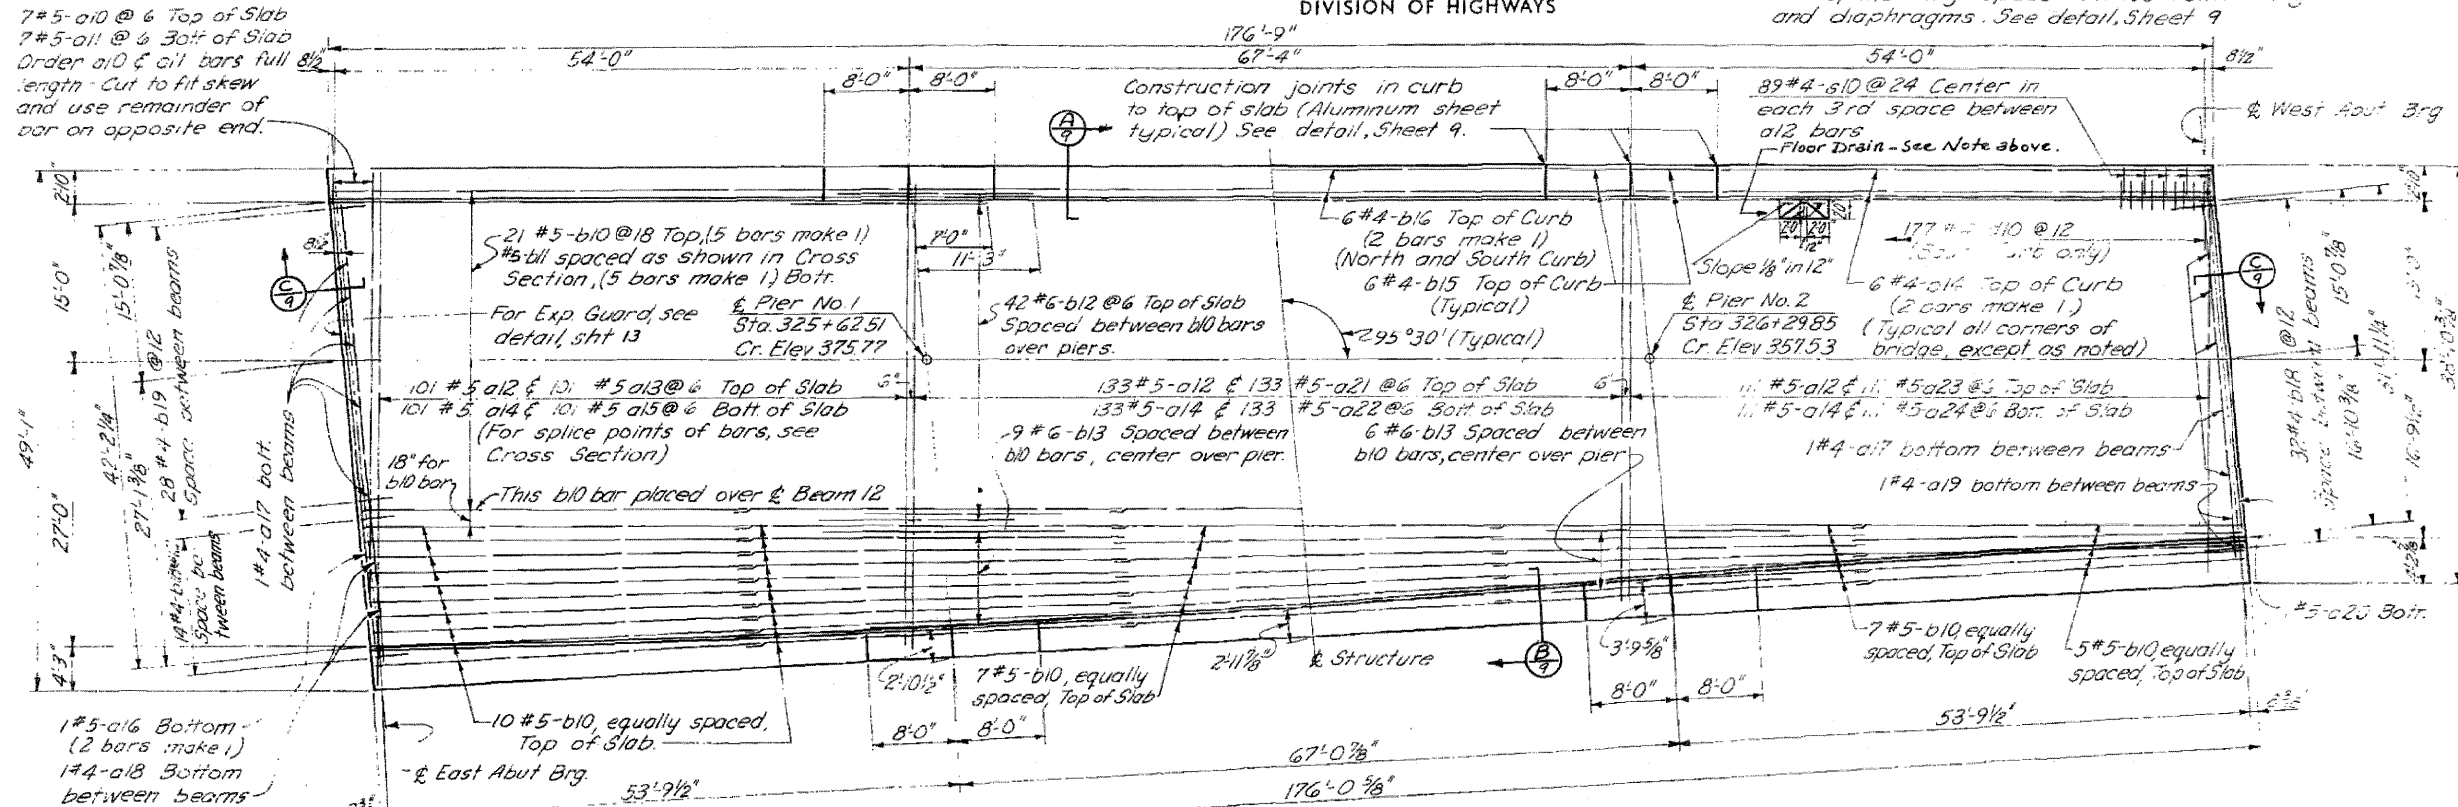 DIVISION OF HIGHWAYS
and diaphragms. See detail, Sheet 9
7#5-a10 @ 6 Top of Slab
7#5-a11 @ 6 Bott of Slab
Order a10 & a11 bars full
length - Cut to fit skew
and use remainder of
bar on opposite end.
176'-9"
8½"
54'-0"
67'-4"
54'-0"
8½"
8'-0"
8'-0"
8'-0"
8'-0"
Construction joints in curb
to top of slab (Aluminum sheet
typical) See detail, Sheet 9.
A
9
89#4-s10 @ 24 Center in
each 3rd space between
a12 bars
Floor Drain - See Note above.
₵ West Abut Brg
2'-10"
15'-0"
27'-0"
4'-3"
49'-1"
42'-2¼"
15'-0⅞"
27'-1⅜"
28 #4-b19 @ 12
Space between beams
Space be
tween beams
1#4-a17 bott.
between beams
8½"
C
9
21 #5-b10 @18 Top, (5 bars make 1)
#5-b11 spaced as shown in Cross
Section, (5 bars make 1) Bott.
For Exp. Guard, see
detail, sht 13
₵ Pier No. 1
Sta. 325+62.51
Cr. Elev 375.77
7'-0"
11'-3"
42 #6-b12 @6 Top of Slab
Spaced between b10 bars
over piers.
6 #4-b16 Top of Curb
(2 bars make 1)
(North and South Curb)
6 #4-b15 Top of Curb
(Typical)
∠95°30' (Typical)
Slope ⅛" in 12"
2'0"
2'0"
12"
20"
177 #4 d10 @ 12
6 #4-b14 Top of Curb
(2 bars make 1.)
(Typical all corners of
bridge, except as noted)
₵ Pier No. 2
Sta 326+29.85
Cr. Elev 357.53
C
9
101 #5 a12 & 101 #5 a13 @ 6 Top of Slab
101 #5 a14 & 101 #5 a15 @ 6 Bott of Slab
(For splice points of bars, see
Cross Section)
6"
133 #5-a12 & 133 #5-a21 @6 Top of Slab
133 #5-a14 & 133 #5-a22 @6 Bott of Slab
6"
#5-a12 & #5 a23 @ 6 Top of Slab
#5-a14 & #5-a24 @ 6 Bott. of Slab
9 #6-b13 Spaced between
b10 bars, center over pier.
6 #6-b13 Spaced between
b10 bars, center over pier
1#4-a17 bottom between beams
1#4-a19 bottom between beams
18" for
b10 bar
This b10 bar placed over ₵ Beam 12
37#4 b18 @ 12
Space between beams
15'-0⅞"
16'-10¾"
31'-11¼"
2'-10"
15'-0"
16'-9½"
#5-a20 Bott.
2'-10½"
7 #5-b10, equally
spaced, Top of Slab
2'-11⅞"
₵ Structure
B
9
3'-9⅝"
7 #5-b10, equally
spaced, Top of Slab
5 #5-b10, equally
spaced, Top of Slab
10 #5-b10, equally spaced,
Top of Slab.
8'-0"
8'-0"
8'-0"
8'-0"
1 #5-a16 Bottom
(2 bars make 1)
1#4-a18 Bottom
between beams
₵ East Abut Brg.
53'-9½"
67'-0⅞"
53'-9½"
176'-0⅝"